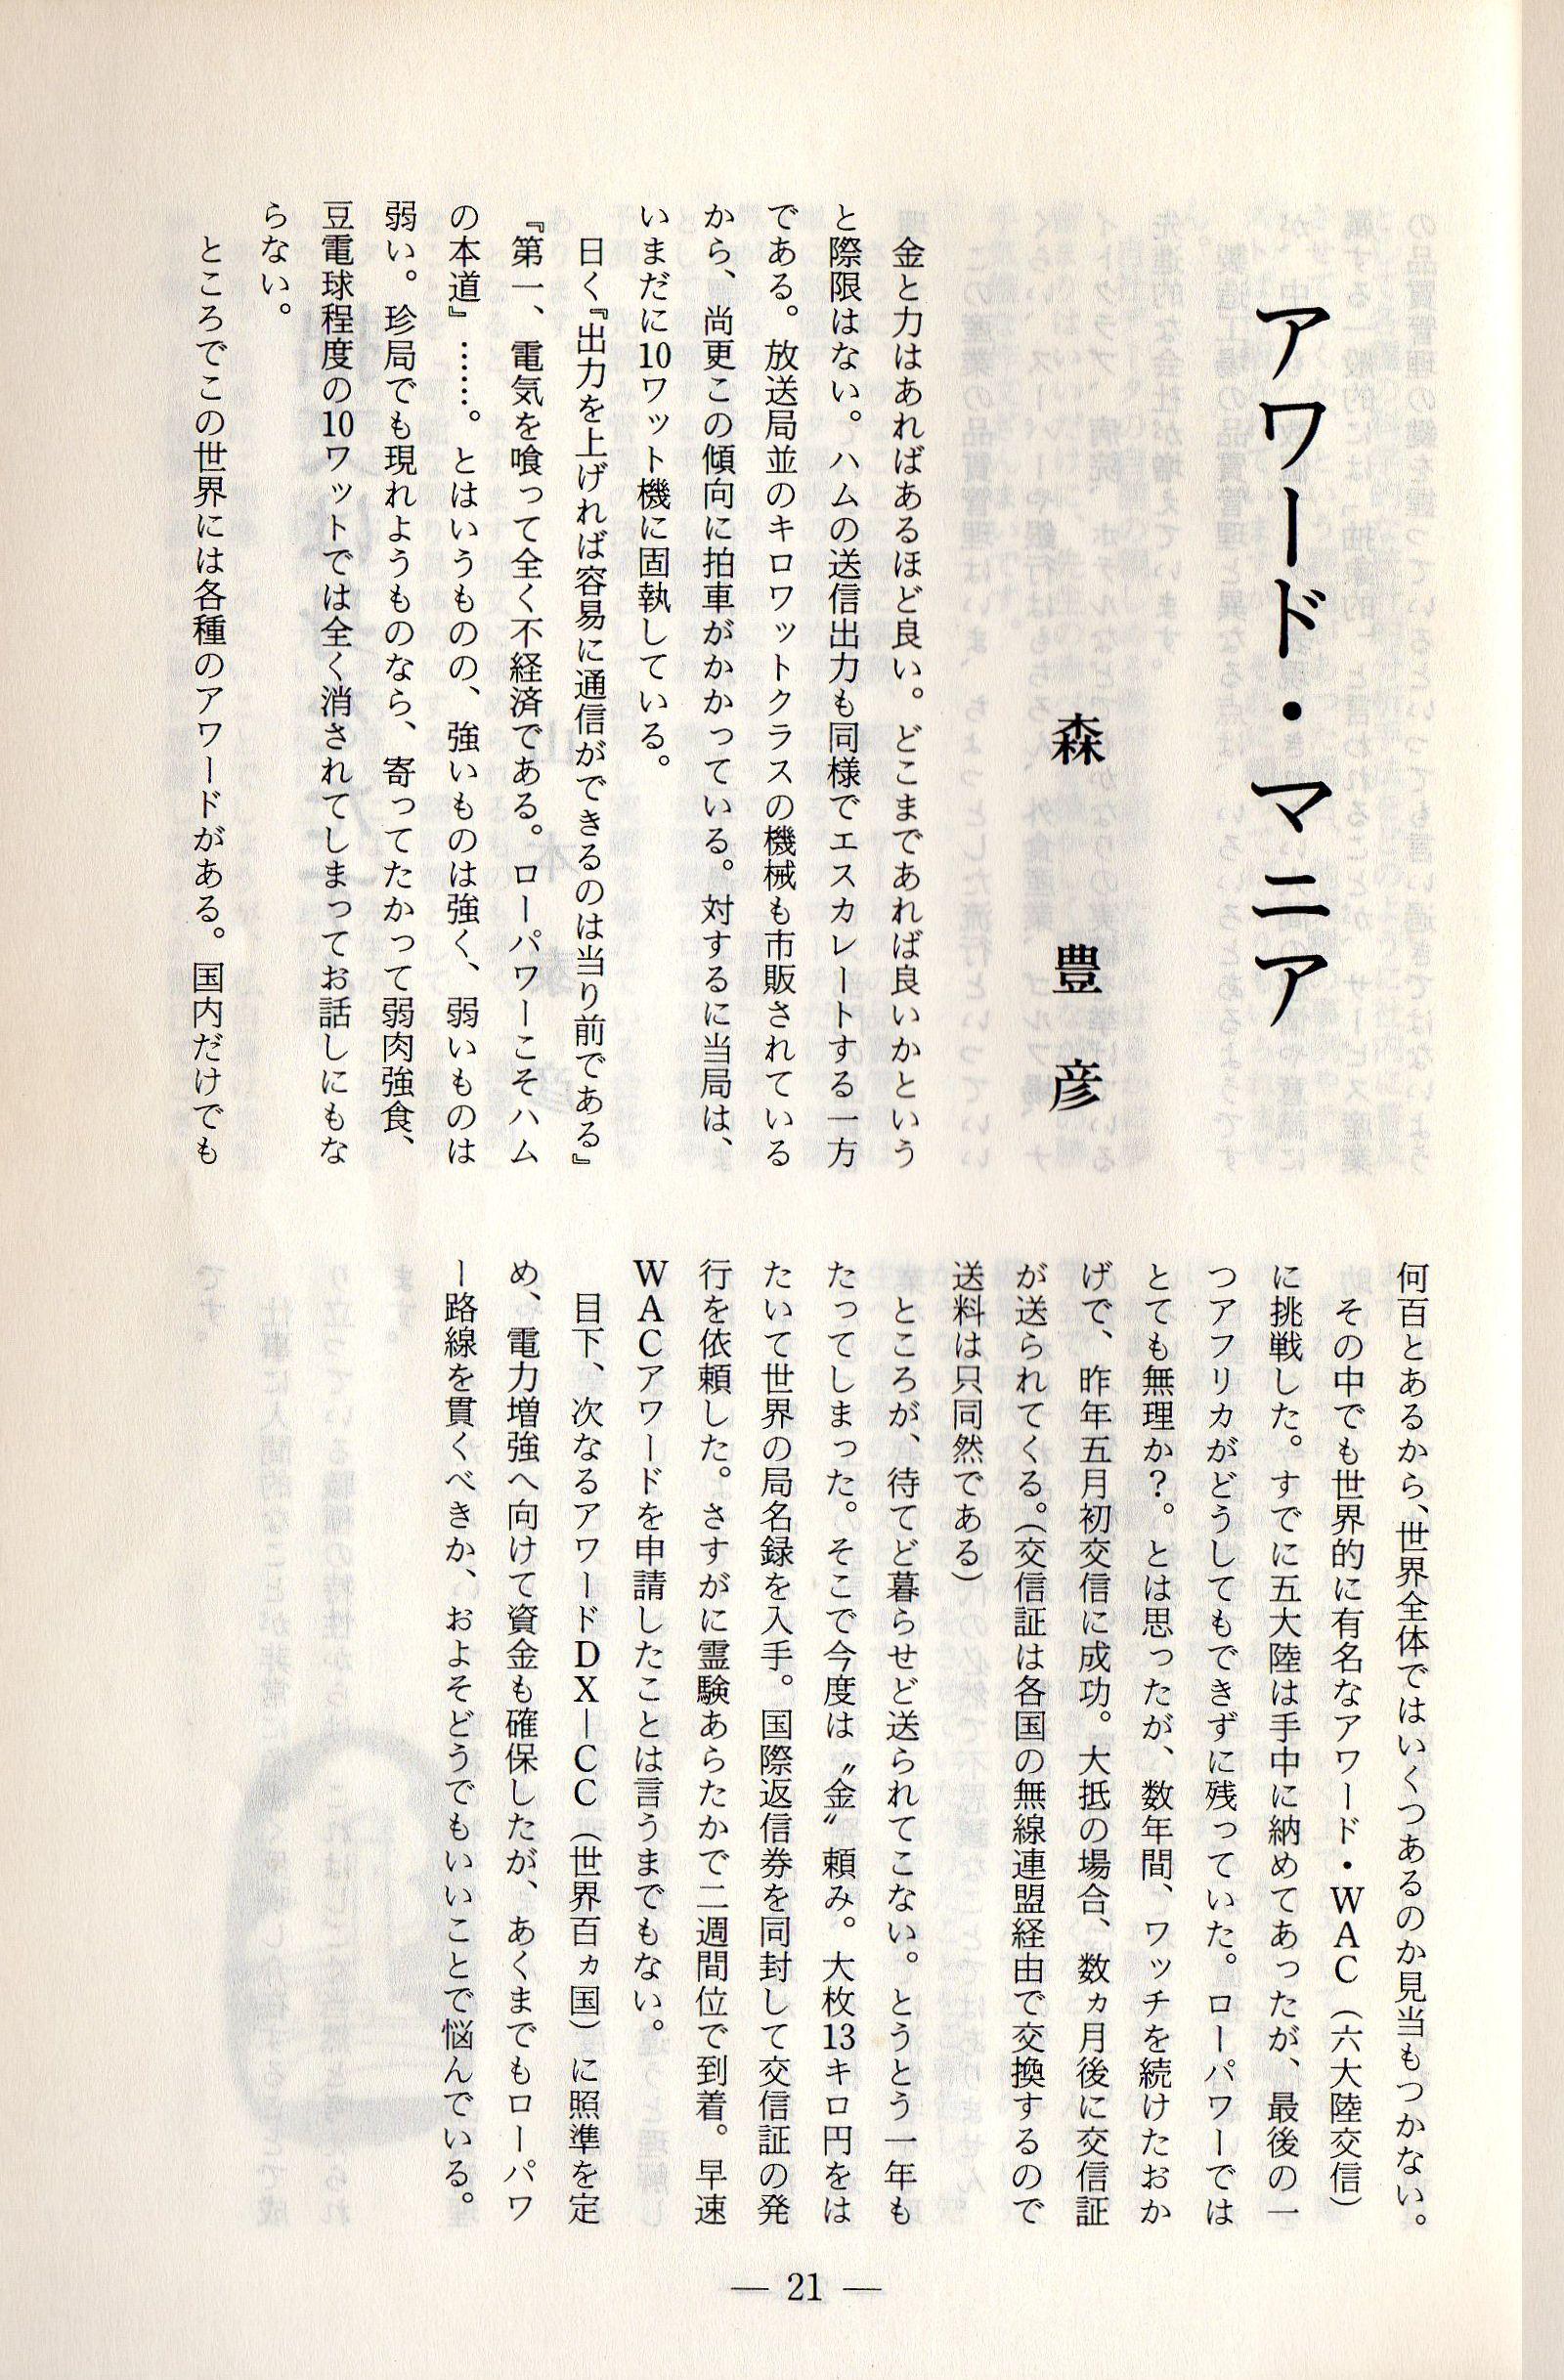 アワード・マニア
森 豊彦
金と力はあればあるほど良い。どこまであれば良いかという
と際限はない。ハムの送信出力も同様でエスカレートする一方
である。放送局並のキロワットクラスの機械も市販されている
から、尚更この傾向に拍車がかかっている。対するに当局は、
いまだに10ワット機に固執している。
日く『出力を上げれば容易に通信ができるのは当り前である』
『第一、電気を喰って全く不経済である。ローパワーこそハム
の本道』……。とはいうものの、強いものは強く、弱いものは
弱い。珍局でも現れようものなら、寄ってたかって弱肉強食、
豆電球程度の10ワットでは全く消されてしまってお話しにもな
らない。
ところでこの世界には各種のアワードがある。国内だけでも
何百とあるから、世界全体ではいくつあるのか見当もつかない。
その中でも世界的に有名なアワード・WAC（六大陸交信）
に挑戦した。すでに五大陸は手中に納めてあったが、最後の一
つアフリカがどうしてもできずに残っていた。ローパワーでは
とても無理か？。とは思ったが、数年間、ワッチを続けたおか
げで、昨年五月初交信に成功。大抵の場合、数ヵ月後に交信証
が送られてくる。（交信証は各国の無線連盟経由で交換するので
送料は只同然である）
ところが、待てど暮らせど送られてこない。とうとう一年も
たってしまった。そこで今度は〝金〟頼み。大枚13キロ円をは
たいて世界の局名録を入手。国際返信券を同封して交信証の発
行を依頼した。さすがに霊験あらたかで二週間位で到着。早速
WACアワードを申請したことは言うまでもない。
目下、次なるアワードDX―CC（世界百ヵ国）に照準を定
め、電力増強へ向けて資金も確保したが、あくまでもローパワ
ー路線を貫くべきか、およそどうでもいいことで悩んでいる。
— 21 —